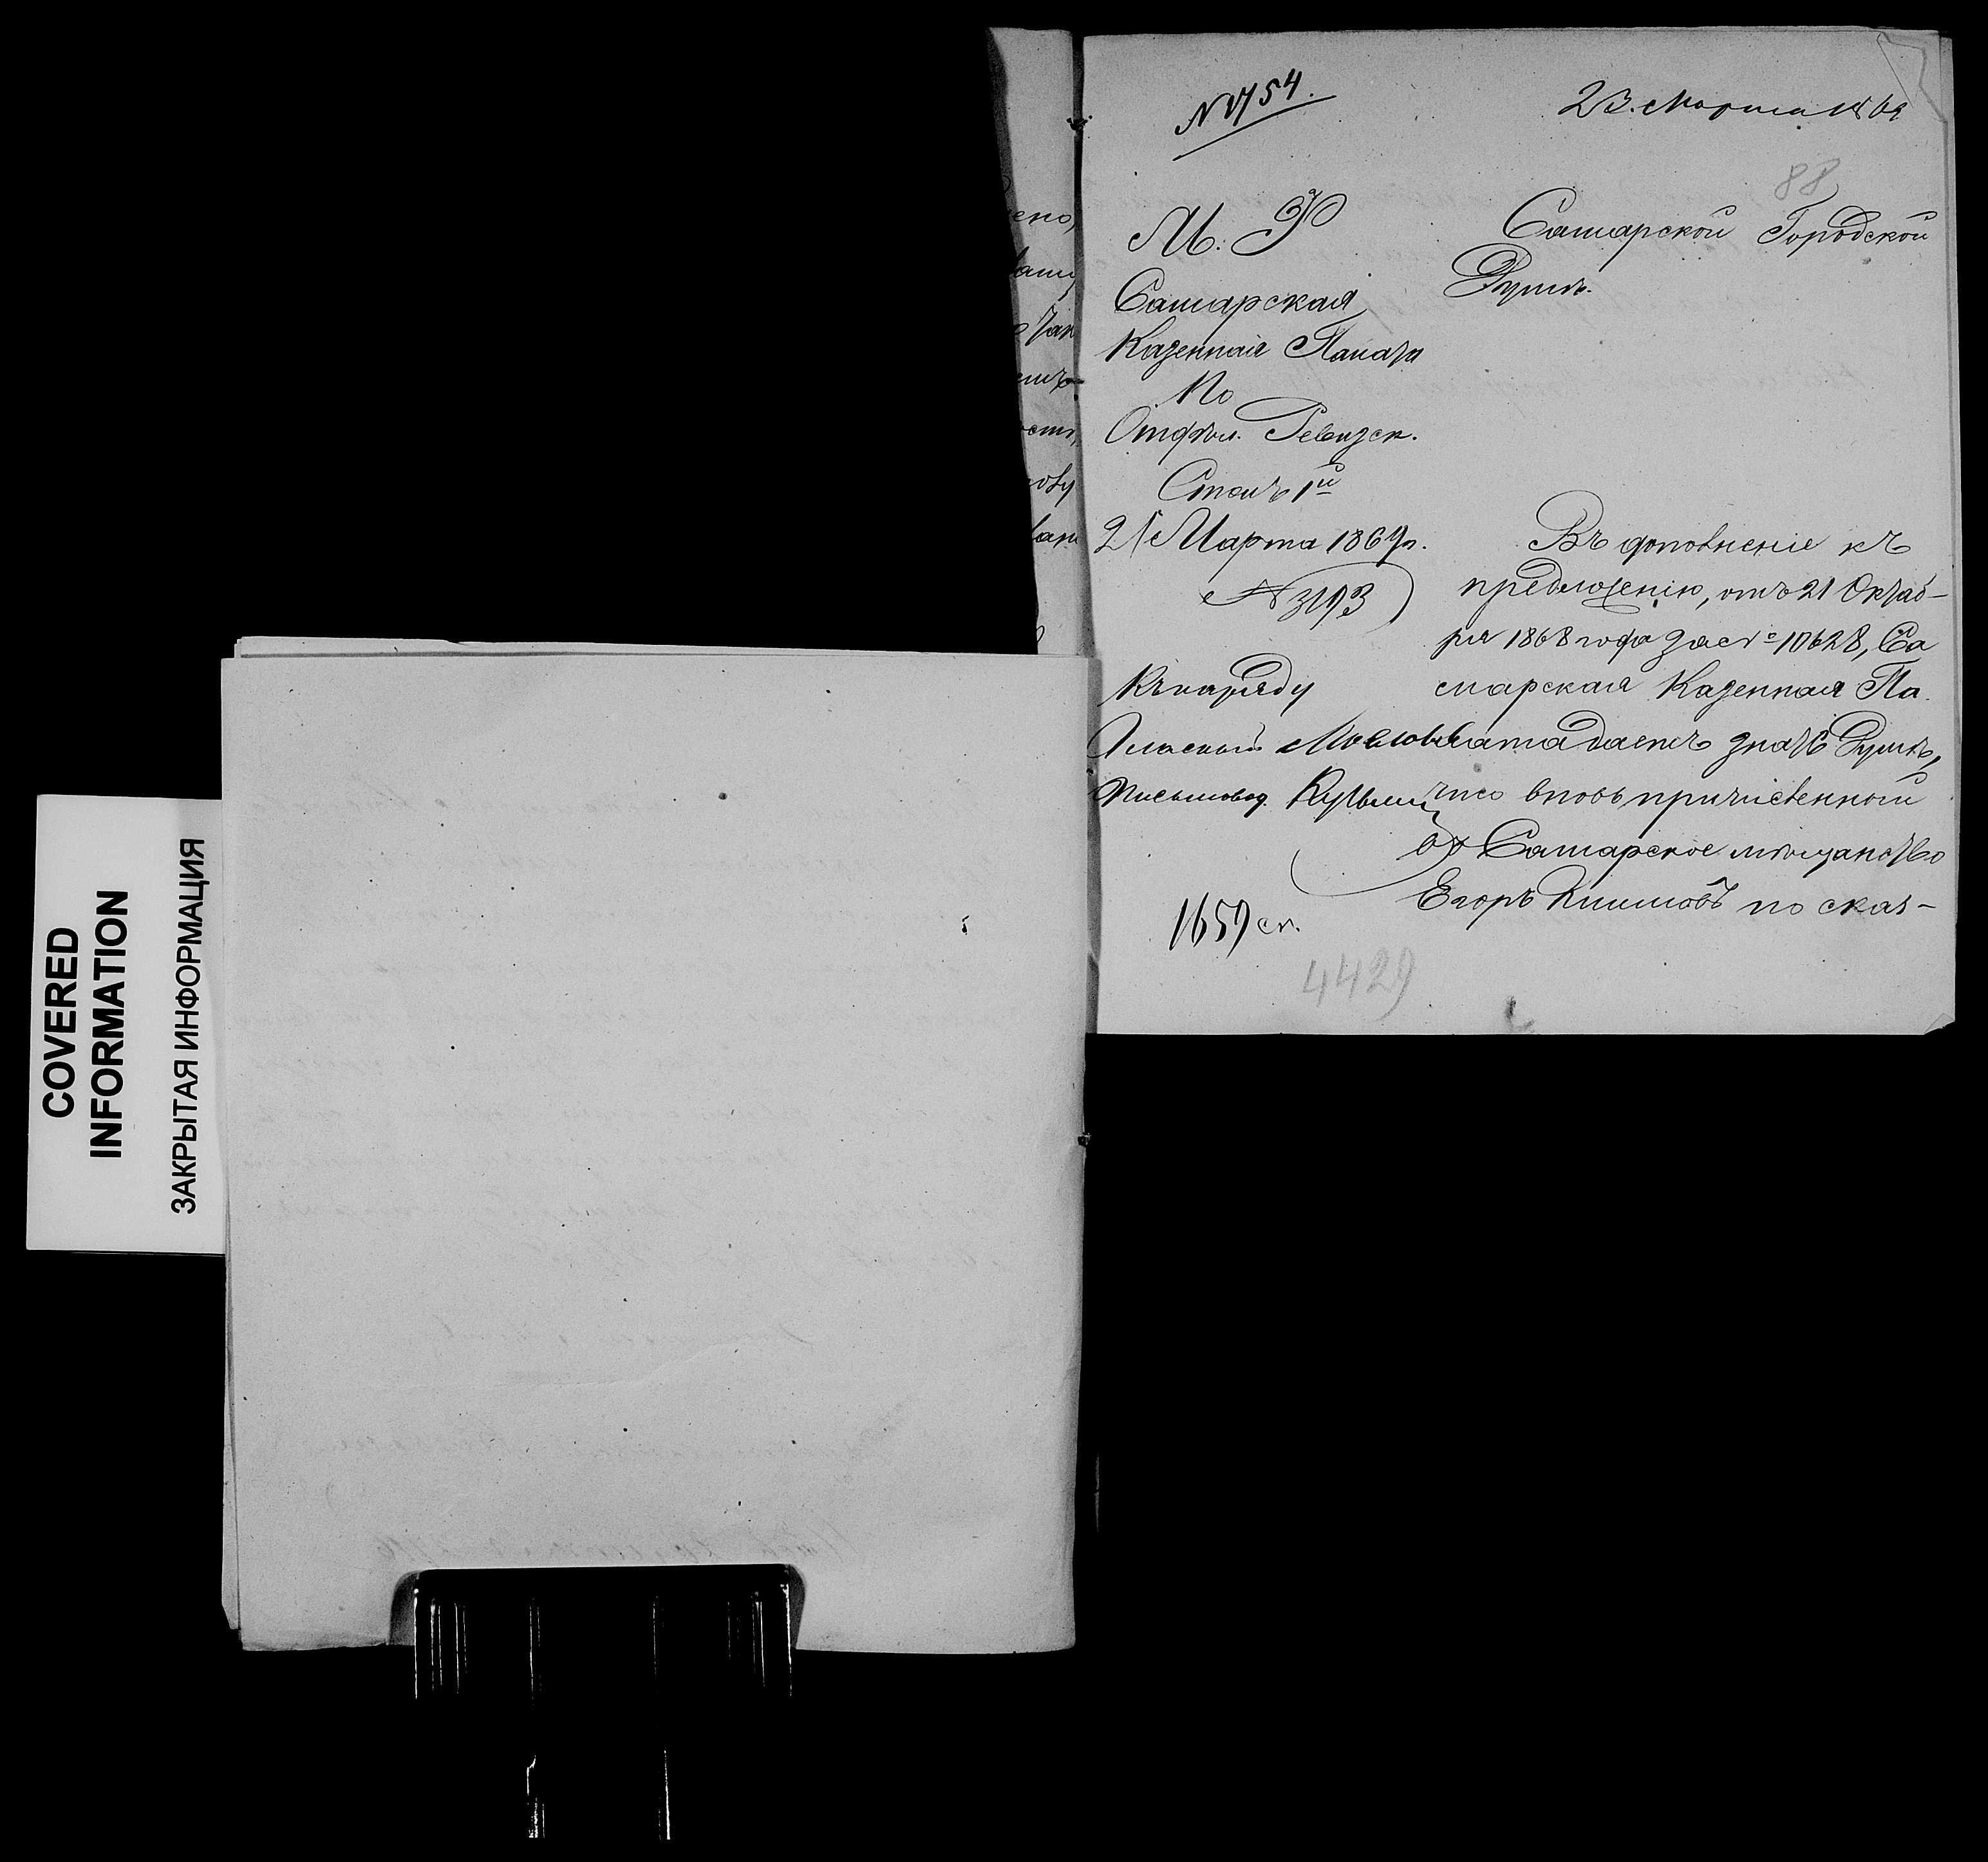 COVERED
INFORMATION
ЗАКРЫТАЯ ИНФОРМАЦИЯ
№ 1754.
23. Марта 1869
88
М. Ф
Самарская
Казенная Палата
По
Отдѣл. Ревизск.
Столъ 1й
21 Марта 1869 г.
№ 3193
Къ наряду
Гласный
Письмовод.
1659 ст.
4429
Самарской Городской
Думѣ.
Въ дополненіе къ
предложенію, отъ 21 Октяб-
ря 1868 года за № 10628, Са
марская Казенная Па
лата даетъ знать Думѣ,
что вновь причисленный
въ Самарское мѣщанство
Егоръ Климовъ по сказ-